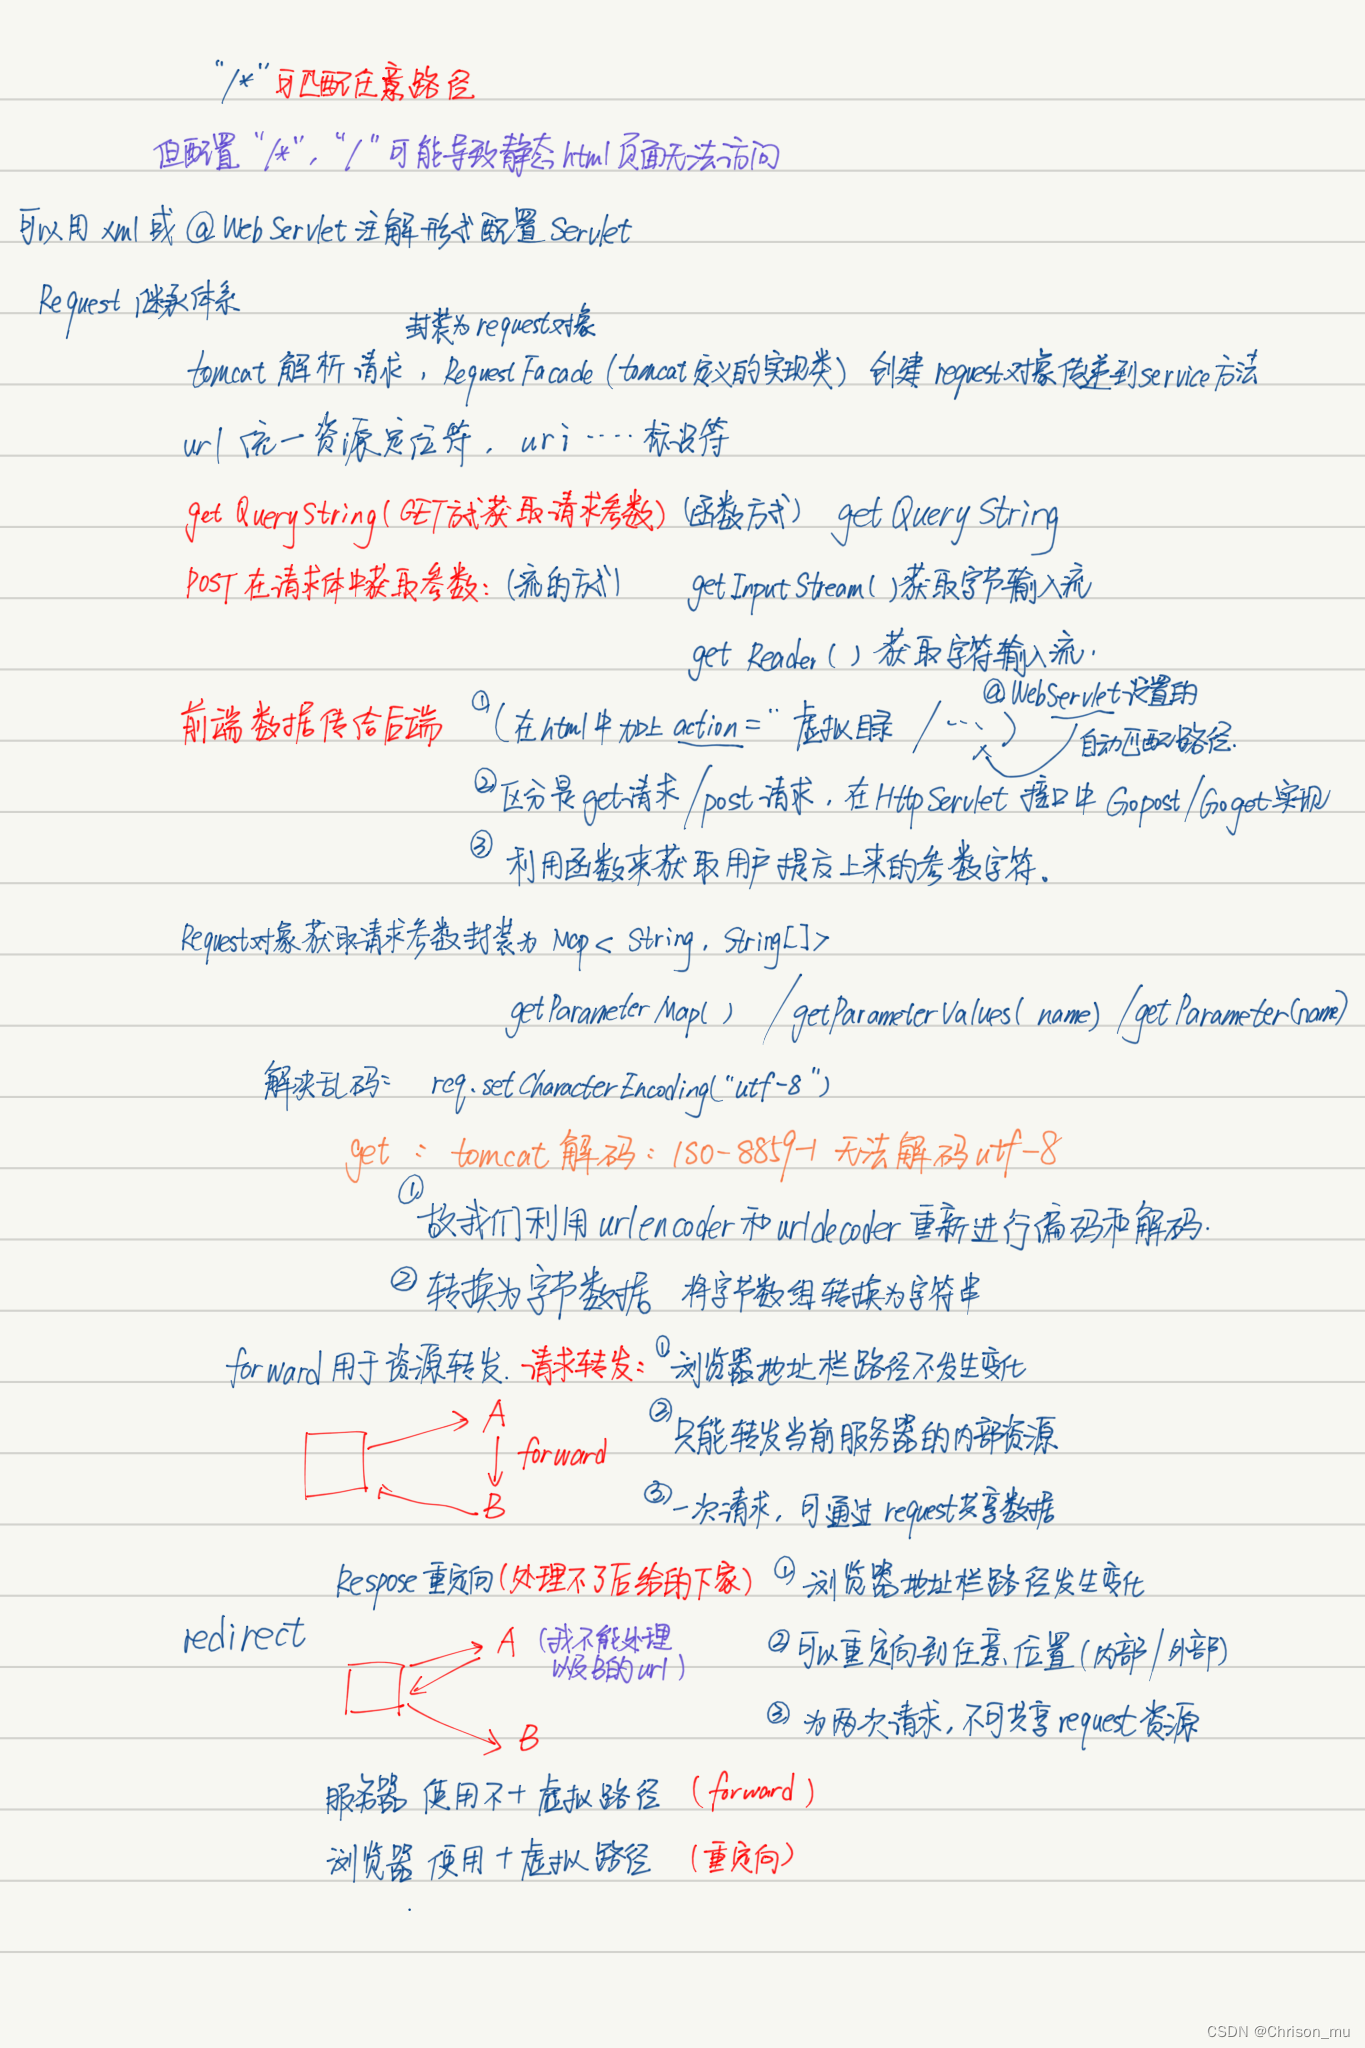 "/*"可匹配任意路径
但配置"/*"，"/"可能导致静态html页面无法访问
可以用xml或@WebServlet注解形式配置Servlet
Request继承体系
封装为request对象
tomcat解析请求，RequestFacade(tomcat定义的实现类) 创建request对象传递到service方法
url统一资源定位符，uri……标识符
getQueryString(GET方式获取请求参数)(函数方式) getQueryString
POST在请求体中获取参数:(流的方式) getInputStream()获取字节输入流
getReader()获取字符输入流.
@WebServlet设置的
前端数据传给后端 ①(在html中加上action="虚拟目录/…)
自动匹配路径.
②区分是get请求/post请求，在HttpServlet接口中Gopost/Goget实现
③利用函数来获取用户提交上来的参数字符。
Request对象获取请求参数封装为Map<String，String[]>
getParameterMap() /getParameterValues(name) /getParameter(name)
解决乱码: req.setCharacterEncoding("utf-8")
get：tomcat解码：ISO-8859-1无法解码utf-8
①故我们利用urlencoder和urldecoder重新进行编码和解码.
②转换为字节数据 将字节数组转换为字符串
forward用于资源转发.请求转发:①浏览器地址栏路径不发生变化
A
②只能转发当前服务器的内部资源
forward
B
③一次请求，可通过request共享数据
Respose重定向(处理不了后给的下家) ①浏览器地址栏路径发生变化
redirect
A (我不能处理
以及B的url)
②可以重定向到任意位置(内部/外部)
③为两次请求，不可共享request资源
B
服务器 使用不+虚拟路径 (forward)
浏览器 使用+虚拟路径 (重定向)
CSDN @Chrison_mu